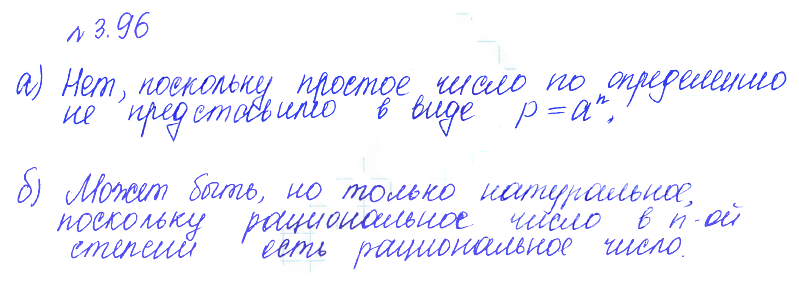 № 3.96
а) Нет, поскольку простое число по определению
не представимо в виде p = aⁿ.
б) Может быть, но только натуральное,
поскольку рациональное число в n-ой
степени есть рациональное число.